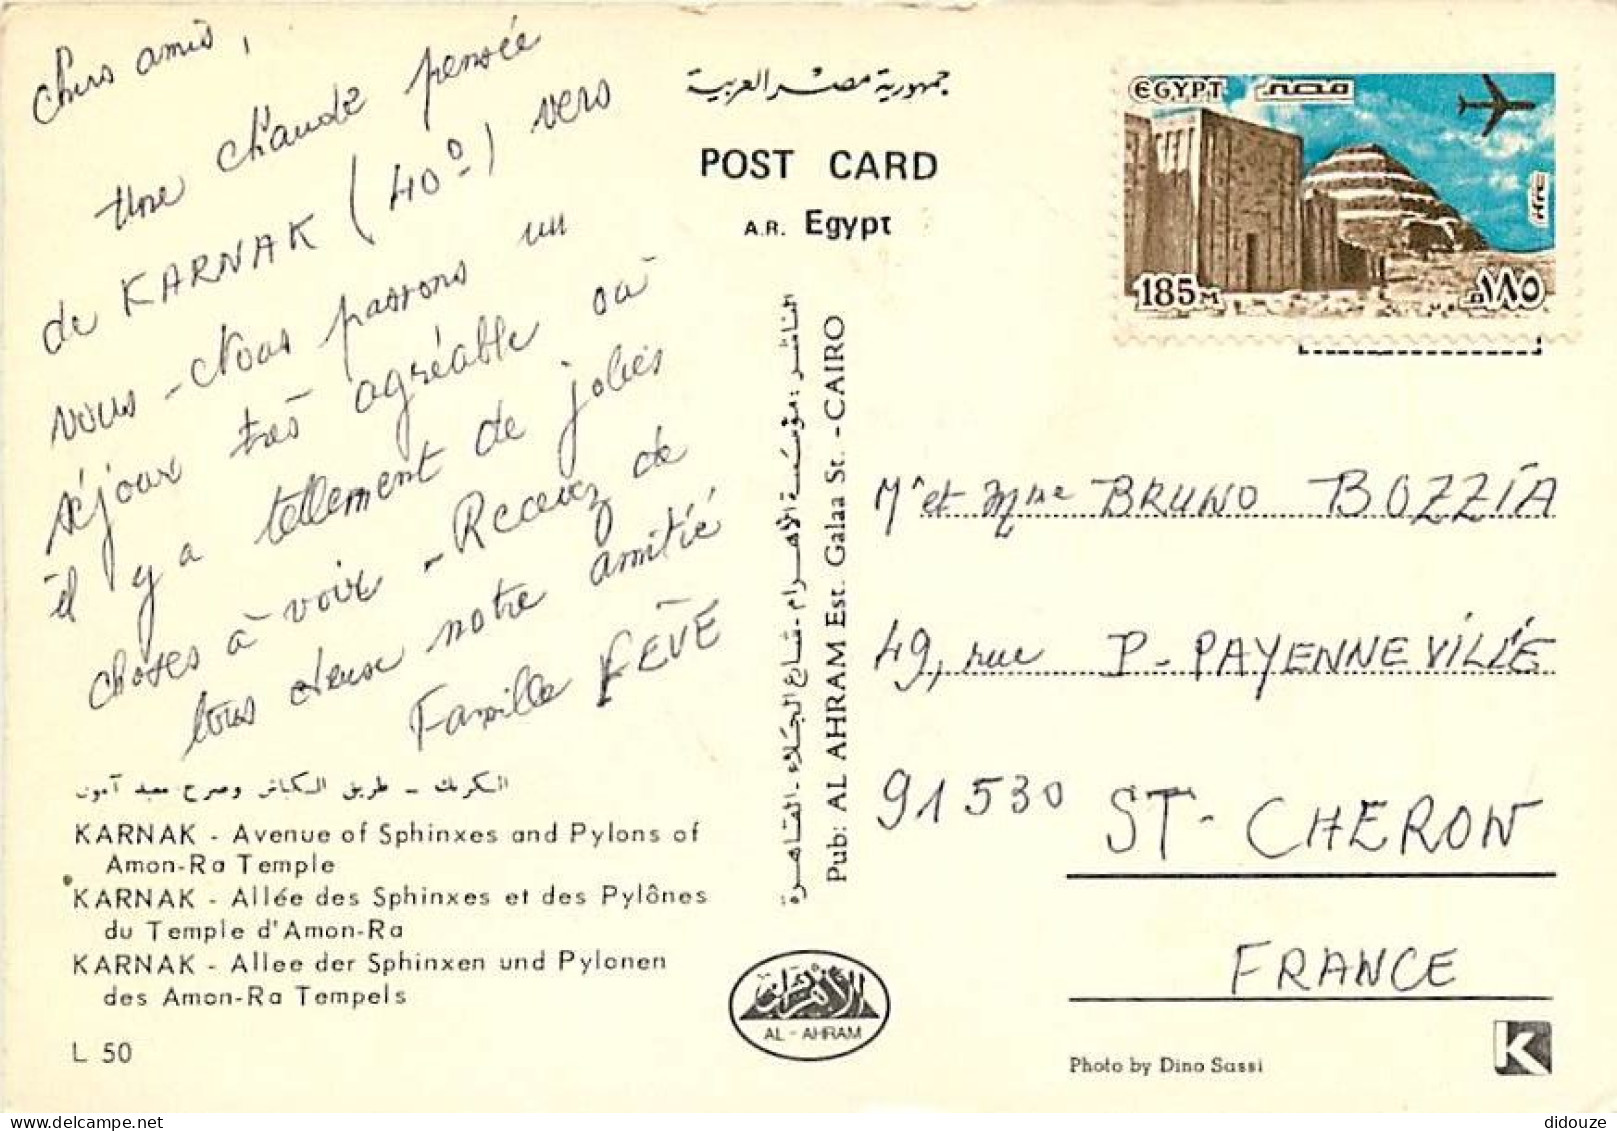 Chers amis,
Une chaude pensée
de KARNAK (40°) vers
vous - Nous passons un
séjour très agréable où
il y a tellement de jolies
choses à voir - Recevez de
tous deux notre amitié
Famille FEVE
الكرنك - طريق الكباش وصرح معبد آمون
KARNAK - Avenue of Sphinxes and Pylons of
Amon-Ra Temple
KARNAK - Allée des Sphinxes et des Pylônes
du Temple d'Amon-Ra
KARNAK - Allee der Sphinxen und Pylonen
des Amon-Ra Tempels
L 50
جمهورية مصر العربية
POST CARD
A.R. Egypt
الناشر: مؤسسة الأهرام - شارع الجلاء - القاهرة
Pub: AL AHRAM Est. Galaa St. - CAIRO
الأهرام
AL - AHRAM
EGYPT مصر
185 M ١٨٥ م
Mr et Mme BRUNO BOZZIA
49, rue P- PAYENNEVILLE
91530 ST- CHERON
FRANCE
Photo by Dino Sassi
K
didouze